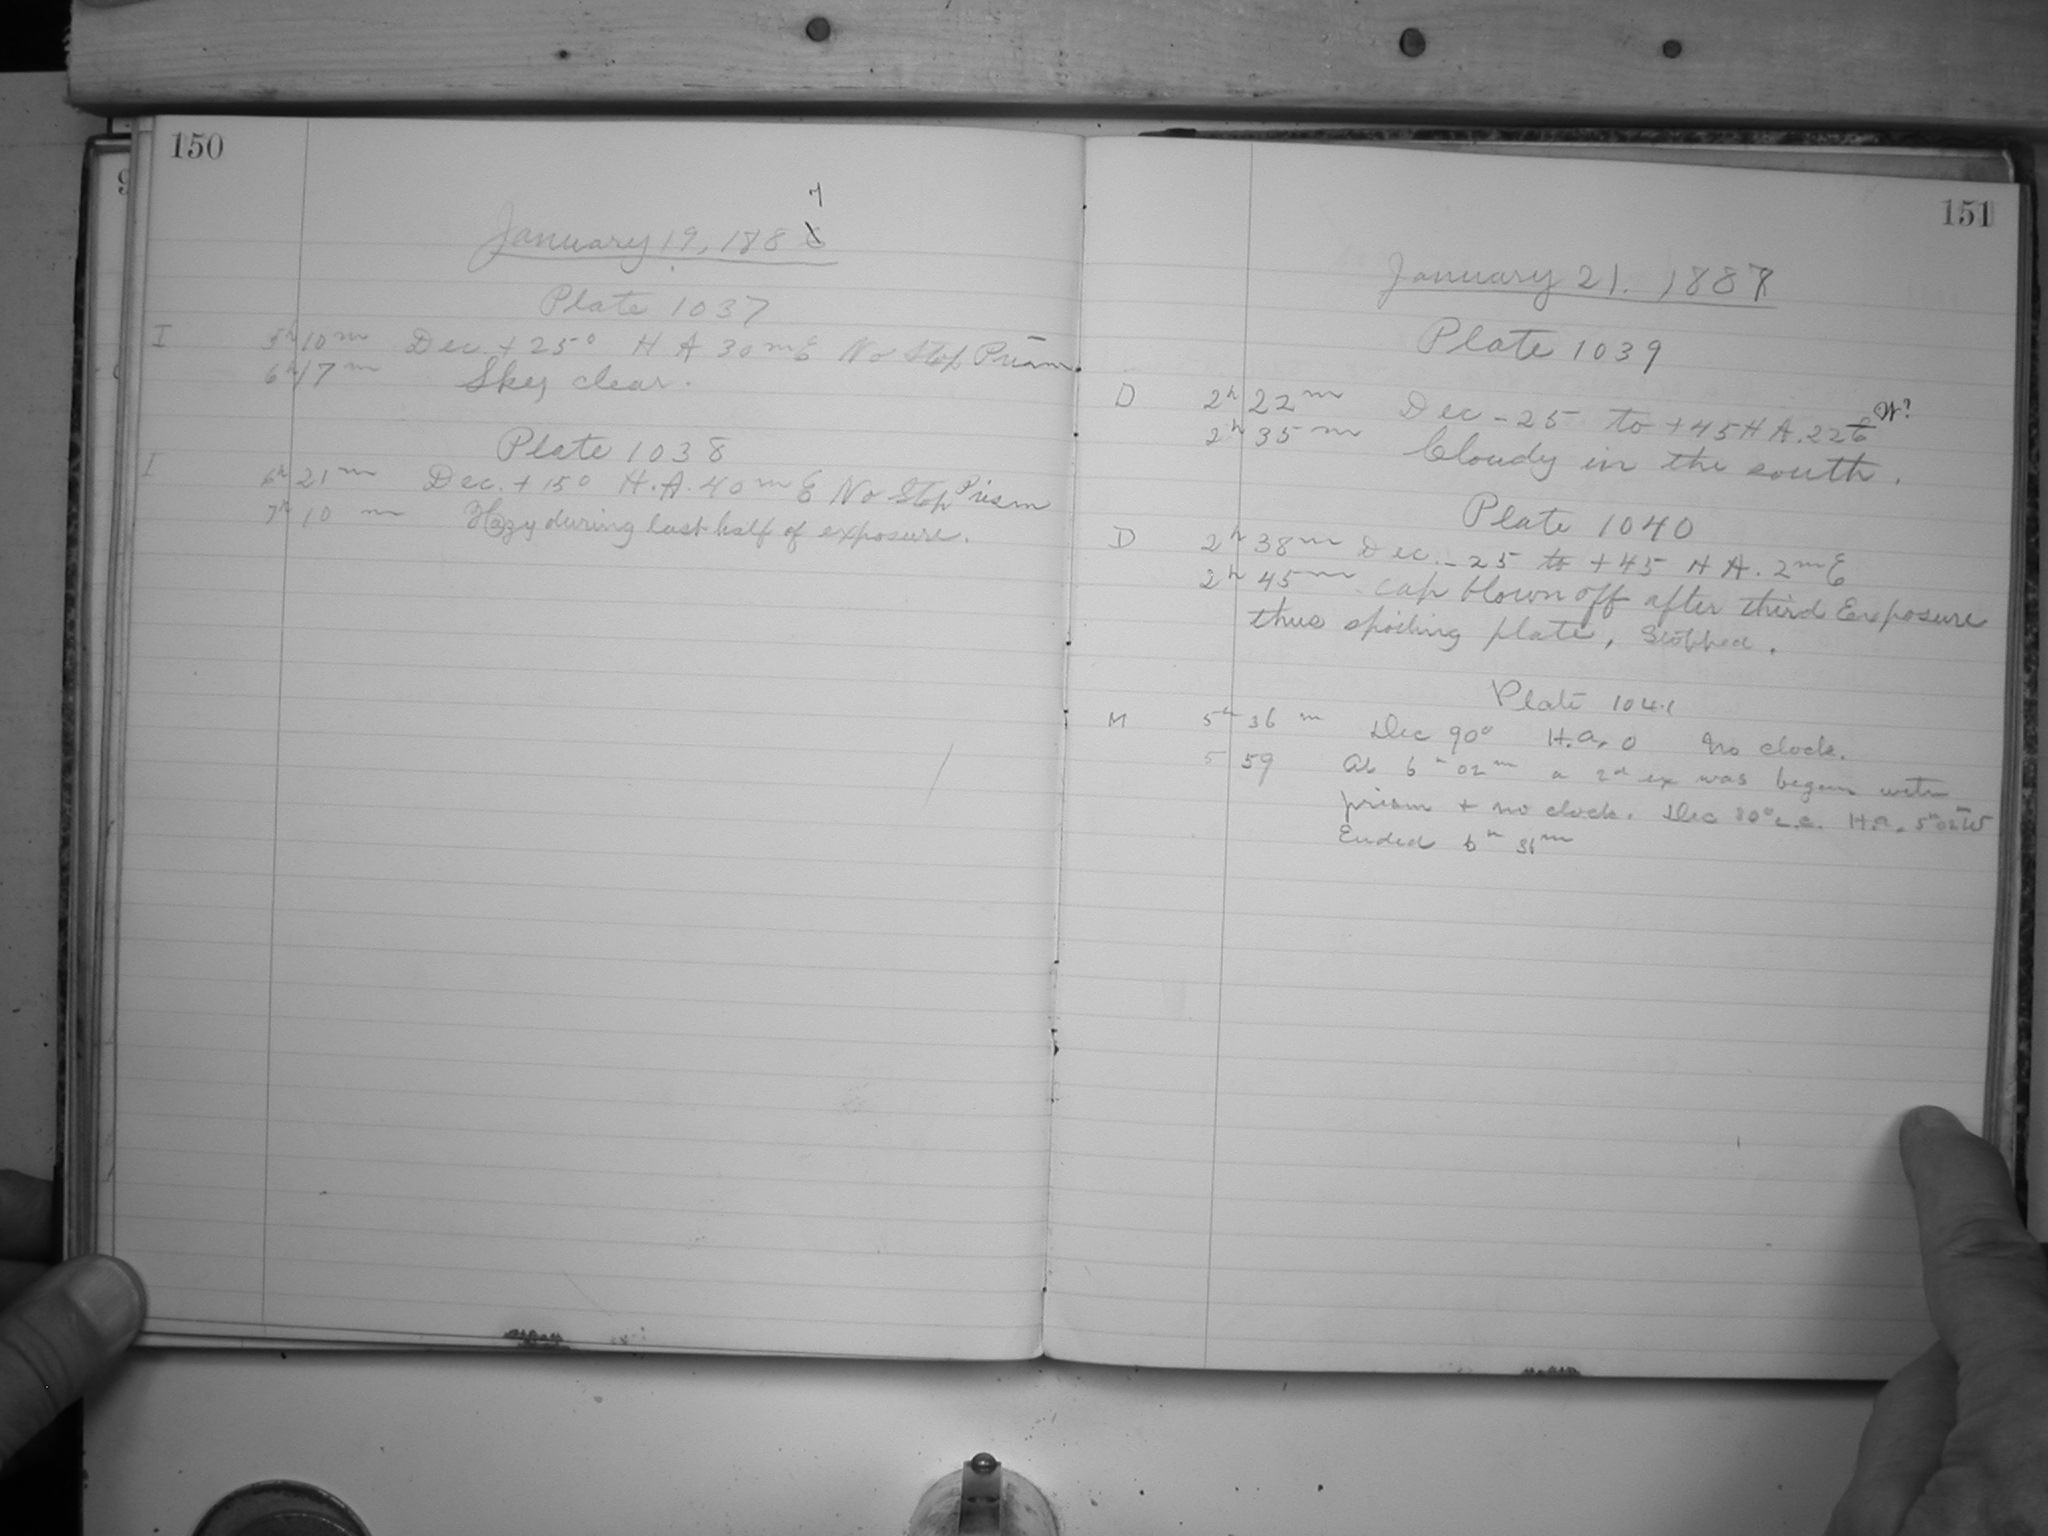 150
January 19, 1887
Plate 1037
I 5h 10m Dec + 25° H A 30m E No Stop Prism
6h 17m Sky clear.
Plate 1038
I 6h 21m Dec. + 15° H.A. 40m E No Stop Prism
7h 10m Hazy during last half of exposure.
151
January 21. 1887
Plate 1039
D 2h 22m Dec - 25 to + 45 H A. 22 W?
2h 35m Cloudy in the south.
Plate 1040
D 2h 38m Dec. - 25 to + 45 H A. 2m E
2h 45m cap blown off after third Exposure
thus spoiling plate, Stopped.
Plate 1041
M 5h 36m Dec 90° H.a. 0 No clock.
5 59 At 6h 02m a 2d ex was begun with
prism + no clock. Dec 80° L.C. H.a. 5h 02m W
Ended 6h 31m